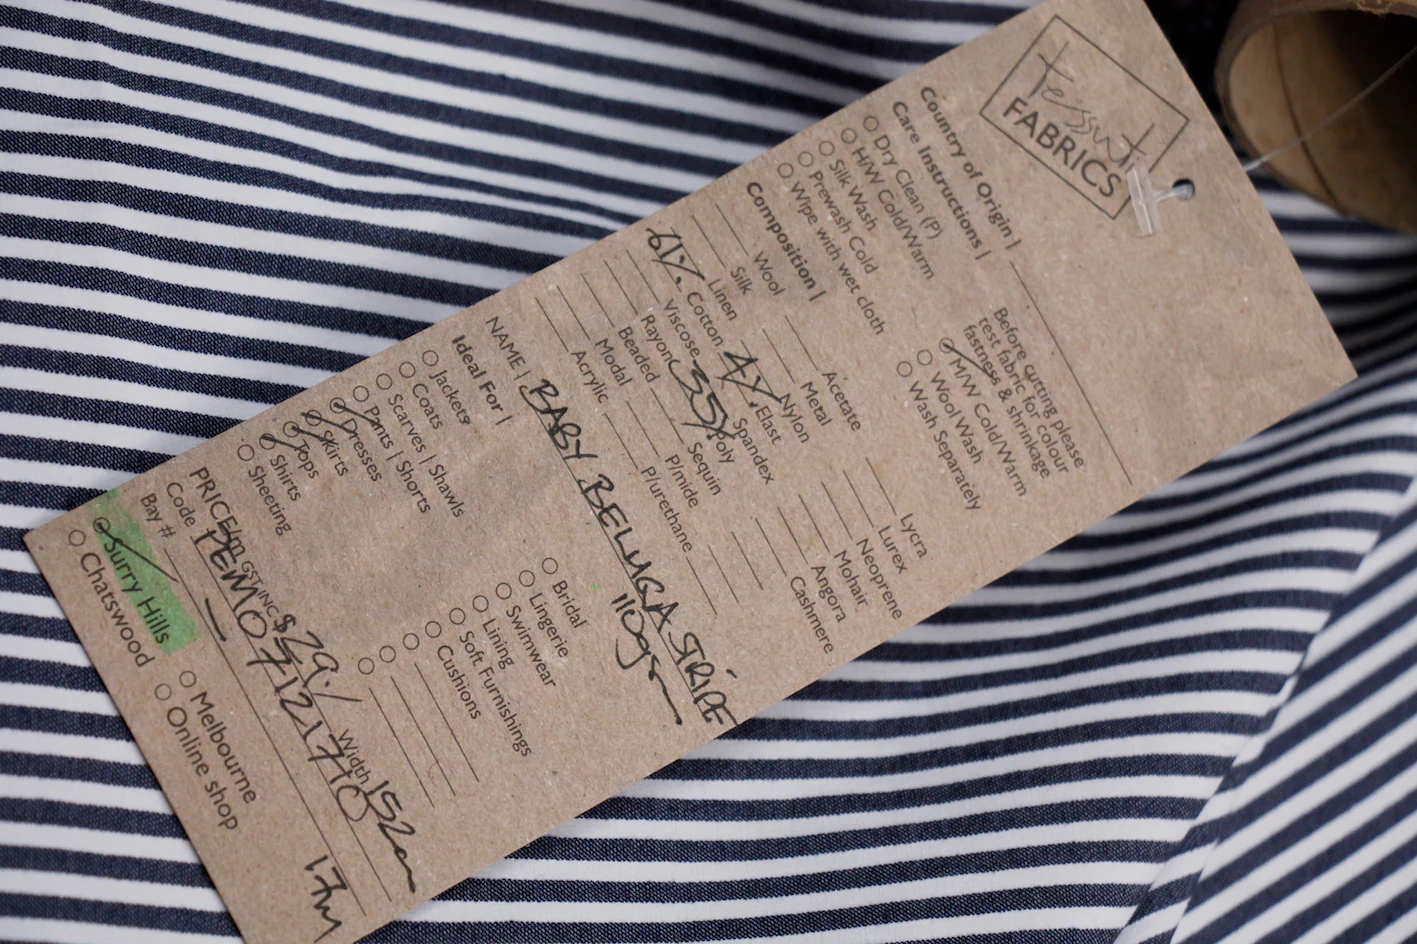 tessuti
FABRICS
Country of Origin |
Care Instructions |
Dry Clean (P)
H/W Cold/Warm
Silk Wash
Prewash Cold
Wipe with wet cloth
Before cutting please
test fabric for colour
fastness & shrinkage
M/W Cold/Warm
Wool Wash
Wash Separately
Composition |
Wool Acetate Lycra
Silk Metal Lurex
Linen Nylon Neoprene
61% Cotton 4% Elast Mohair
Viscose Spandex Angora
Rayon 35% Poly Cashmere
Beaded Sequin
Modal P/mide
Acrylic P/urethane
NAME | BABY BELUGA STRIPE
110gsm
Ideal For |
Jackets Bridal
Coats Lingerie
Scarves | Shawls Swimwear
Pants | Shorts Lining
Dresses Soft Furnishings
Skirts Cushions
Tops
Shirts
Sheeting
PRICE/m GST INC $29./ Width 152cm
Code TEMO71217/10
Bay # 17m
Surry Hills Melbourne
Chatswood Online shop